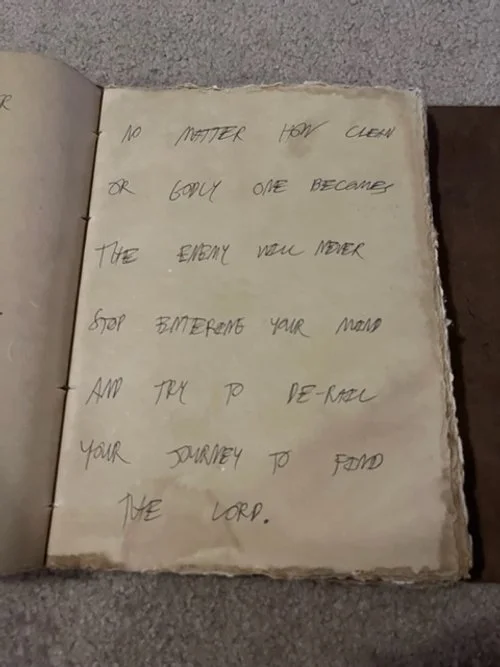 R
NO MATTER HOW CLEAN
OR GODLY ONE BECOMES
THE ENEMY WILL NEVER
STOP ENTERING YOUR MIND
AND TRY TO DE-RAIL
YOUR JOURNEY TO FIND
THE LORD.